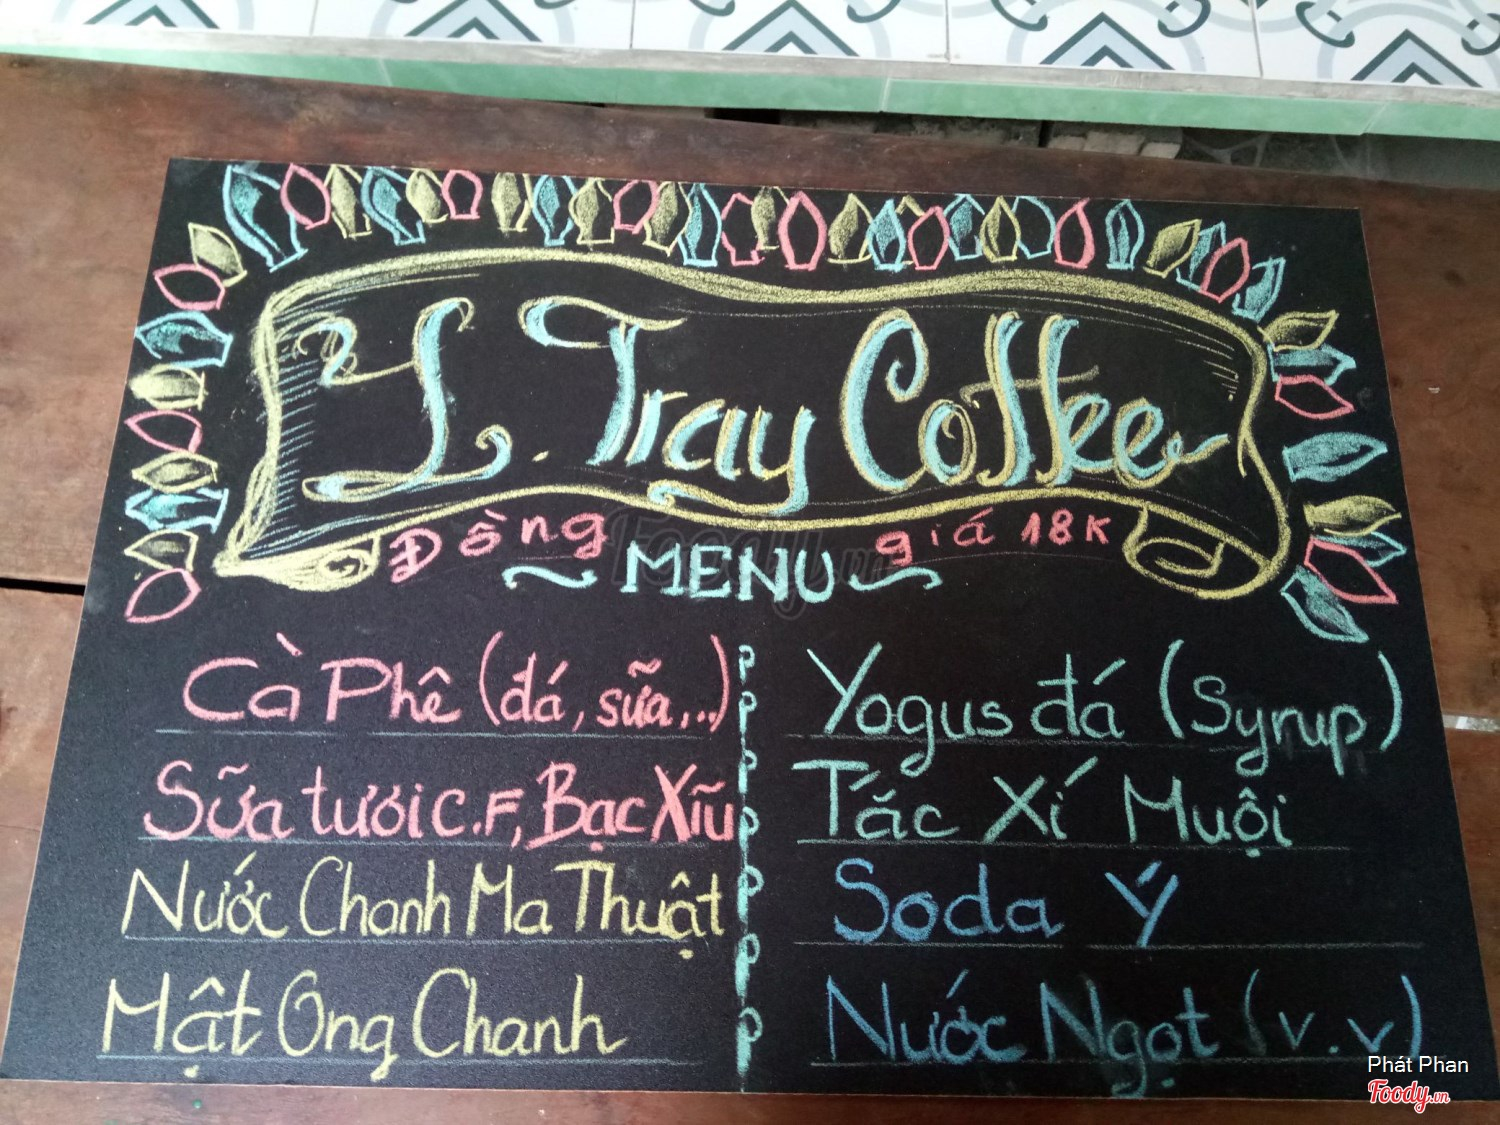 Y. Tray Coffee
Đồng giá 18K
MENU
Cà Phê (đá, sữa,..)
Sữa tươi C.F, Bạc Xĩu
Nước Chanh Ma Thuật
Mật Ong Chanh
Yogus đá (Syrup)
Tắc Xí Muội
Soda Ý
Nước Ngọt (v.v)
Foody.vn
Phát Phan
Foody.vn